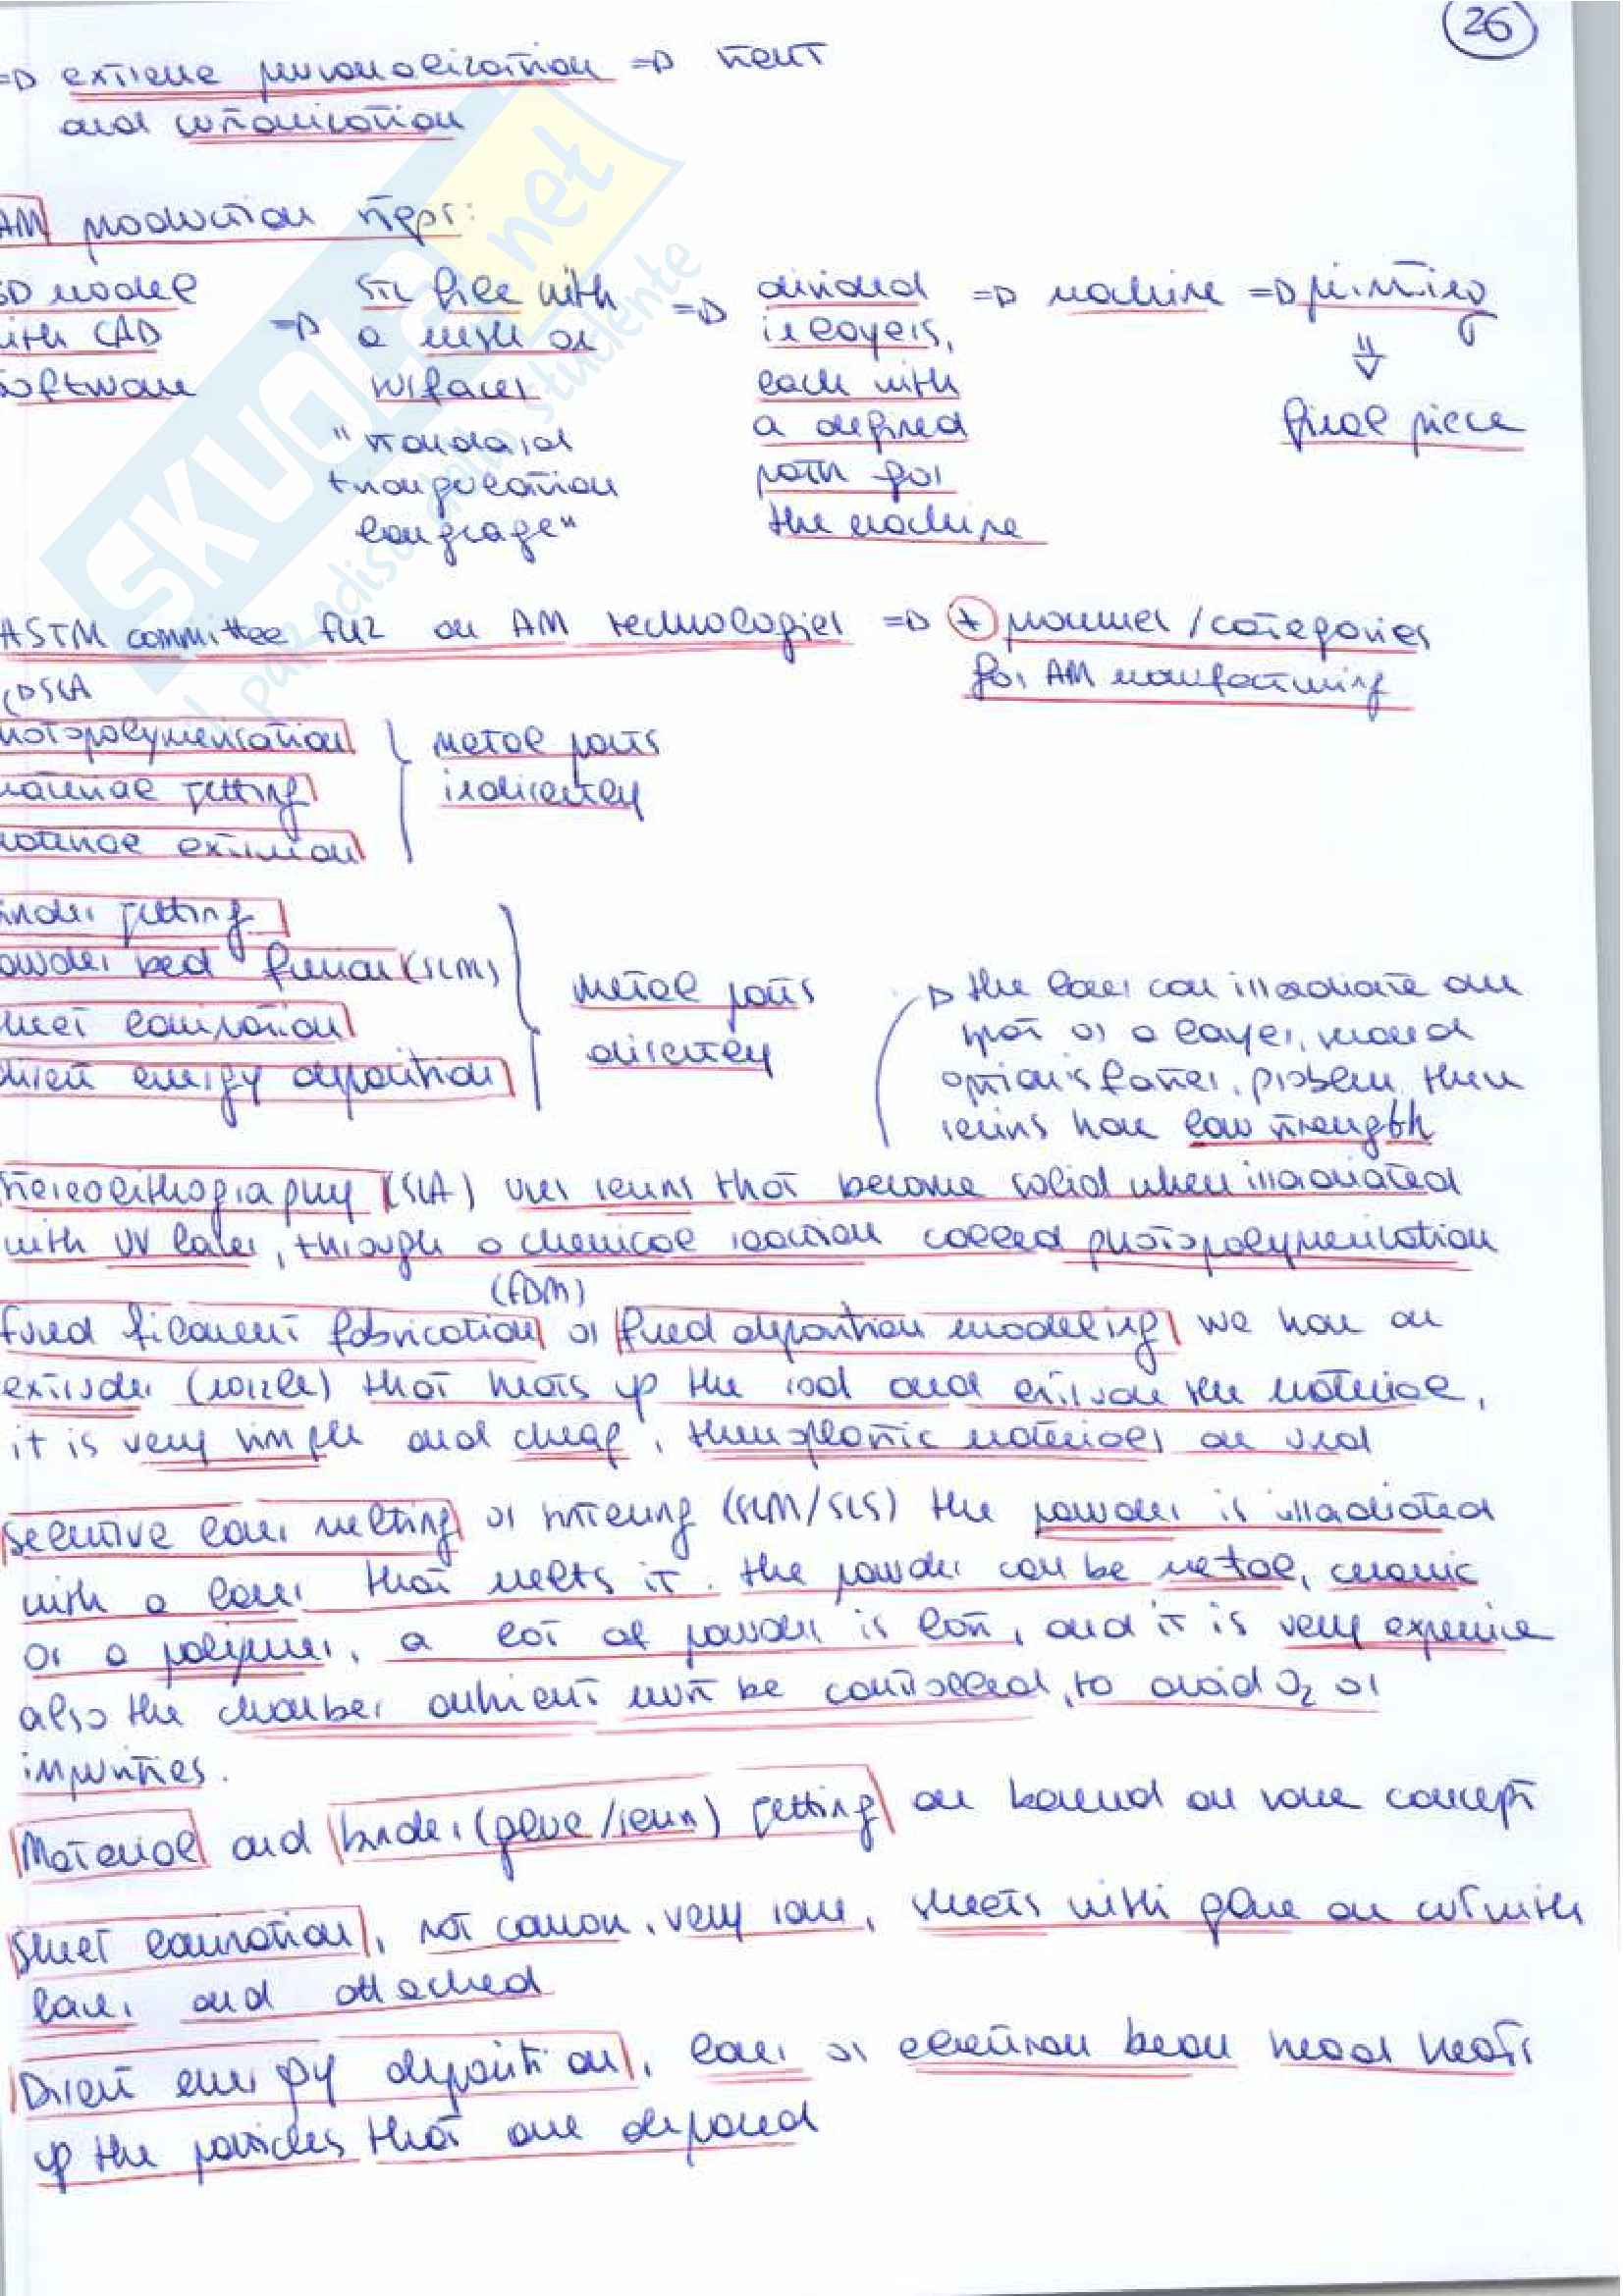 26
=D extreme personalization =D stent
and customization
AM production steps:
3D model with CAD software =D STL file with a mesh on surfaces "standard triangulation language" =D divided in layers, each with a defined path for the machine =D machine =D printing
⇓
final piece
ASTM committee F42 on AM technologies =D 7 processes / categories
for AM manufacturing
SLA
photopolymerisation
material jetting
material extrusion
metal parts
indirectly
binder jetting
powder bed fusion (SLM)
sheet lamination
direct energy deposition
metal parts
directly
the laser can irradiate one
spot or a layer, second
option is faster, problem these
resins have low strength
stereolithography (SLA) uses resins that become solid when irradiated
with UV laser, through a chemical reaction called photopolymerisation
(FDM)
fused filament fabrication or fused deposition modeling we have an
extruder (nozzle) that heats up the rod and extrude the material,
it is very simple and cheap, thermoplastic materials are used
selective laser melting or sintering (SLM/SLS) the powder is irradiated
with a laser that melts it. the powder can be metal, ceramic
or a polymer, a lot of powder is lost, and it is very expensive
also the chamber ambient must be controlled, to avoid O₂ or
impurities.
Material and binder (glue/resin) jetting are based on same concept
sheet lamination, not common, very rare, sheets with glue are cut with
laser and attached
Direct energy deposition, laser or electron beam head heats
up the particles that are deposed
SKUOLA.net
il paradiso dello studente